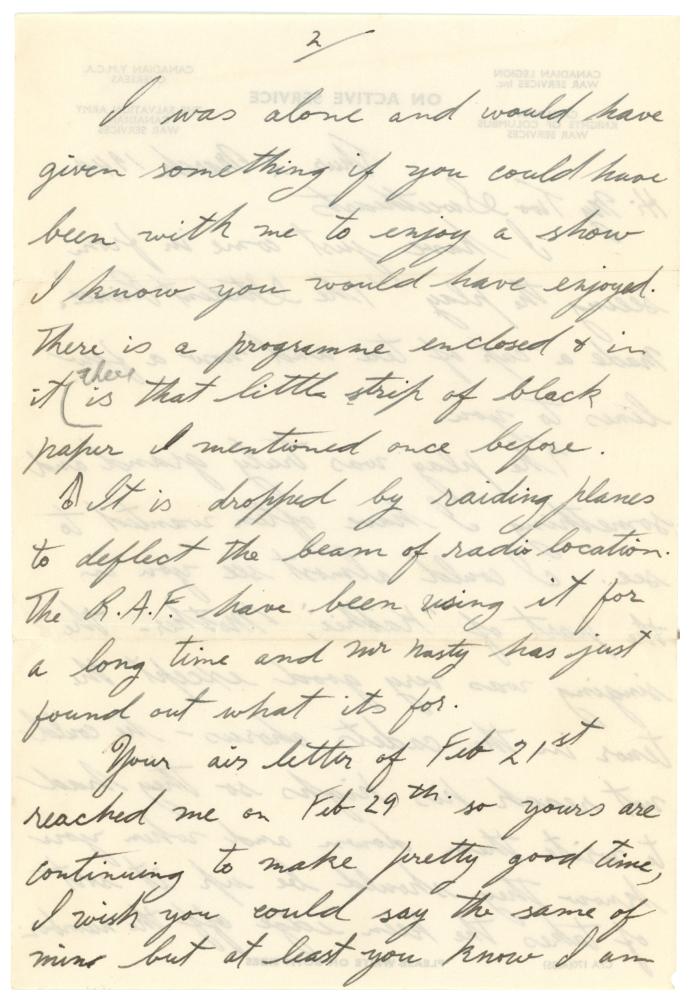 2
I was alone and would have
given something if you could have
been with me to enjoy a show
I know you would have enjoyed.
There is a programme enclosed & in
it is that little strip of black
paper I mentioned once before.
It is dropped by raiding planes
to deflect the beam of radio location.
The R.A.F. have been using it for
a long time and Mr Nasty has just
found out what its for.
Your air letter of Feb 21st
reached me on Feb 29th. so yours are
continuing to make pretty good time,
I wish you could say the same of
mine but at least you know I am